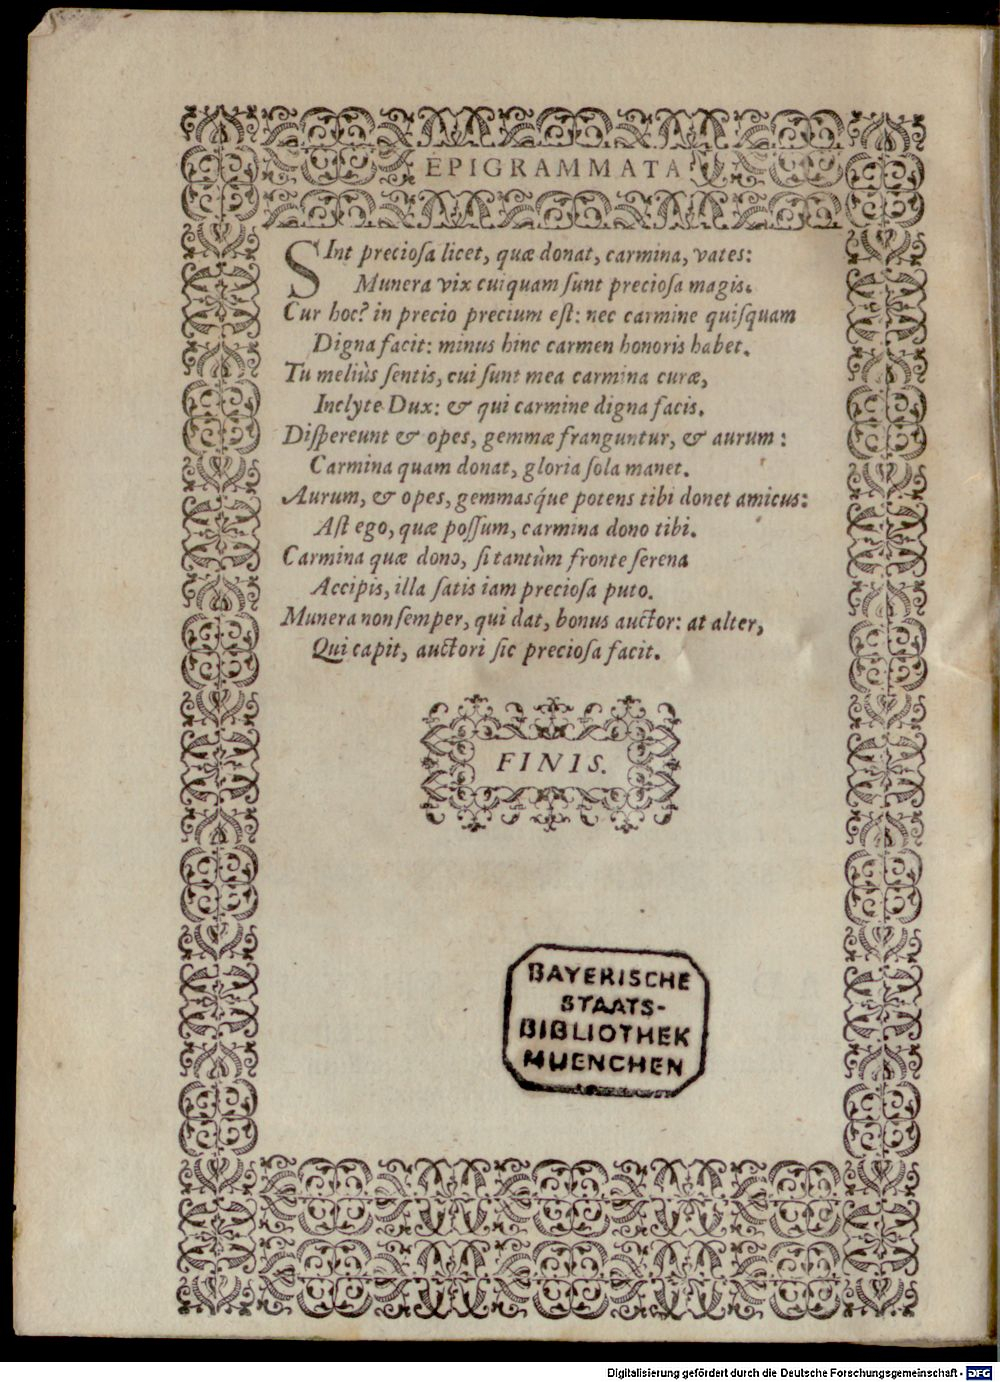 EPIGRAMMATA
SInt precioſa licet, quæ donat, carmina, vates:
Munera vix cuiquam ſunt precioſa magis.
Cur hoc? in precio precium eſt: nec carmine quiſquam
Digna facit: minus hinc carmen honoris habet.
Tu meliùs ſentis, cui ſunt mea carmina curæ,
Inclyte Dux: & qui carmine digna facis.
Diſpereunt & opes, gemmæ franguntur, & aurum:
Carmina quam donat, gloria ſola manet.
Aurum, & opes, gemmasq́ue potens tibi donet amicus:
Aſt ego, quæ poſſum, carmina dono tibi.
Carmina quæ dono, ſi tantùm fronte ſerena
Accipis, illa ſatis iam precioſa puto.
Munera non ſemper, qui dat, bonus auctor: at alter,
Qui capit, auctori ſic precioſa facit.
FINIS.
BAYERISCHE
STAATS-
BIBLIOTHEK
MUENCHEN
Digitalisierung gefördert durch die Deutsche Forschungsgemeinschaft - DFG